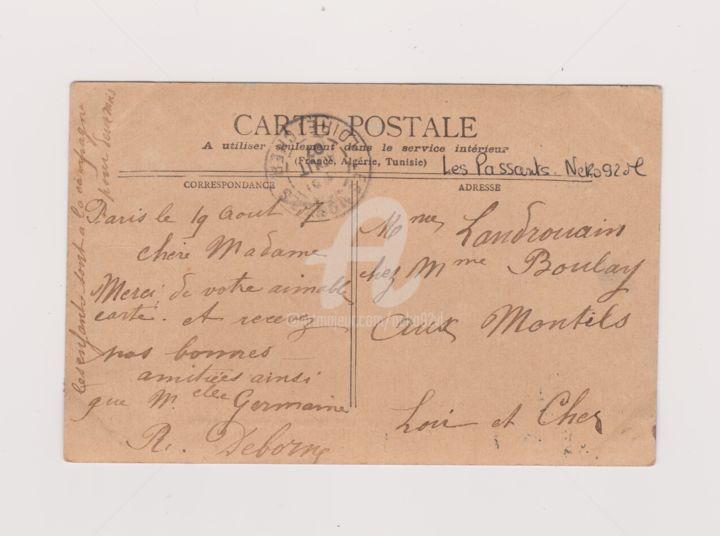 CARTE POSTALE
A utiliser seulement dans le service intérieur
(France, Algérie, Tunisie)
Les Passants. Nero92dl
CORRESPONDANCE
ADRESSE
Paris le 19 Aout
chère Madame
Merci de votre aimable
carte. et recevez
nos bonnes
amitiées ainsi
que Melle Germaine
R.
les enfants sont a la campagne
pour deux mois
Mme Landrouain
chez Mme Boulay
aux Montils
Loir et Cher